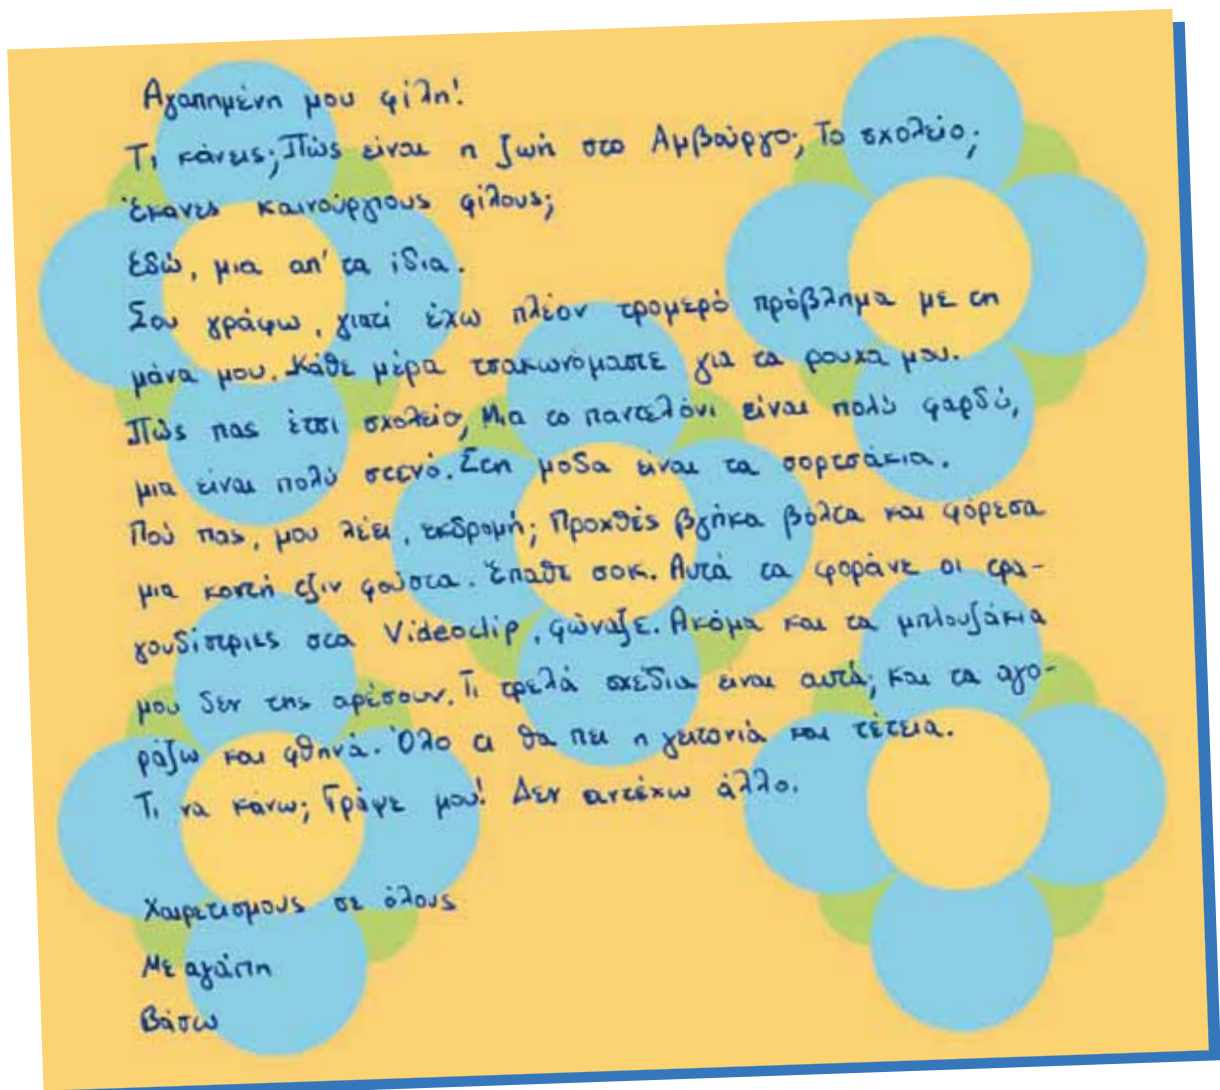 Αγαπημένη μου φίλη!
Τι κάνεις; Πώς είναι η ζωή στο Αμβούργο; Το σχολείο;
Έκανες καινούργιους φίλους;
Εδώ, μια απ' τα ίδια.
Σου γράφω, γιατί έχω πλέον τρομερό πρόβλημα με τη
μάνα μου. Κάθε μέρα τσακωνόμαστε για τα ρουχα μου.
Πώς πας έτσι σχολείο, Μια το παντελόνι είναι πολύ φαρδύ,
μια είναι πολύ στενό. Στη μοδα είναι τα σορτσάκια.
Πού πας, μου λέει, εκδρομή; Προχθές βγήκα βόλτα και φόρεσα
μια κοντή τζιν φούστα. Έπαθε σοκ. Αυτά τα φοράνε οι τρα-
γουδίστριες στα Videoclip, φώναξε. Ακόμα και τα μπλουζάκια
μου δεν της αρέσουν. Τι τρελά σχέδια είναι αυτά; Και τα αγο-
ράζω και φθηνά. Όλο τι θα πει η γειτονιά και τέτεια.
Τι να κάνω; Γράψε μου! Δεν αντέχω άλλο.
Χαιρετισμους σε όλους
Με αγάπη
Βάσω